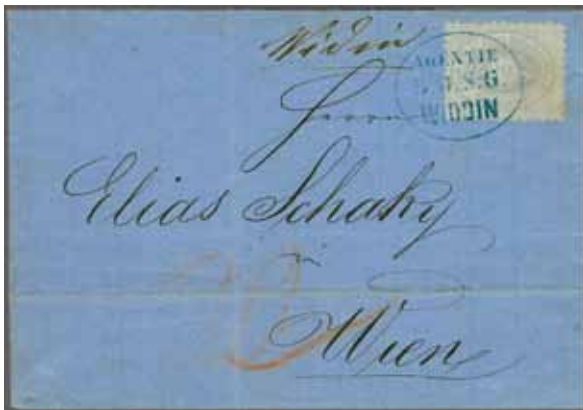 Widin
AGENTIE
S.G.
WIDDIN
Herrn
Elias Schaky
in
Wien